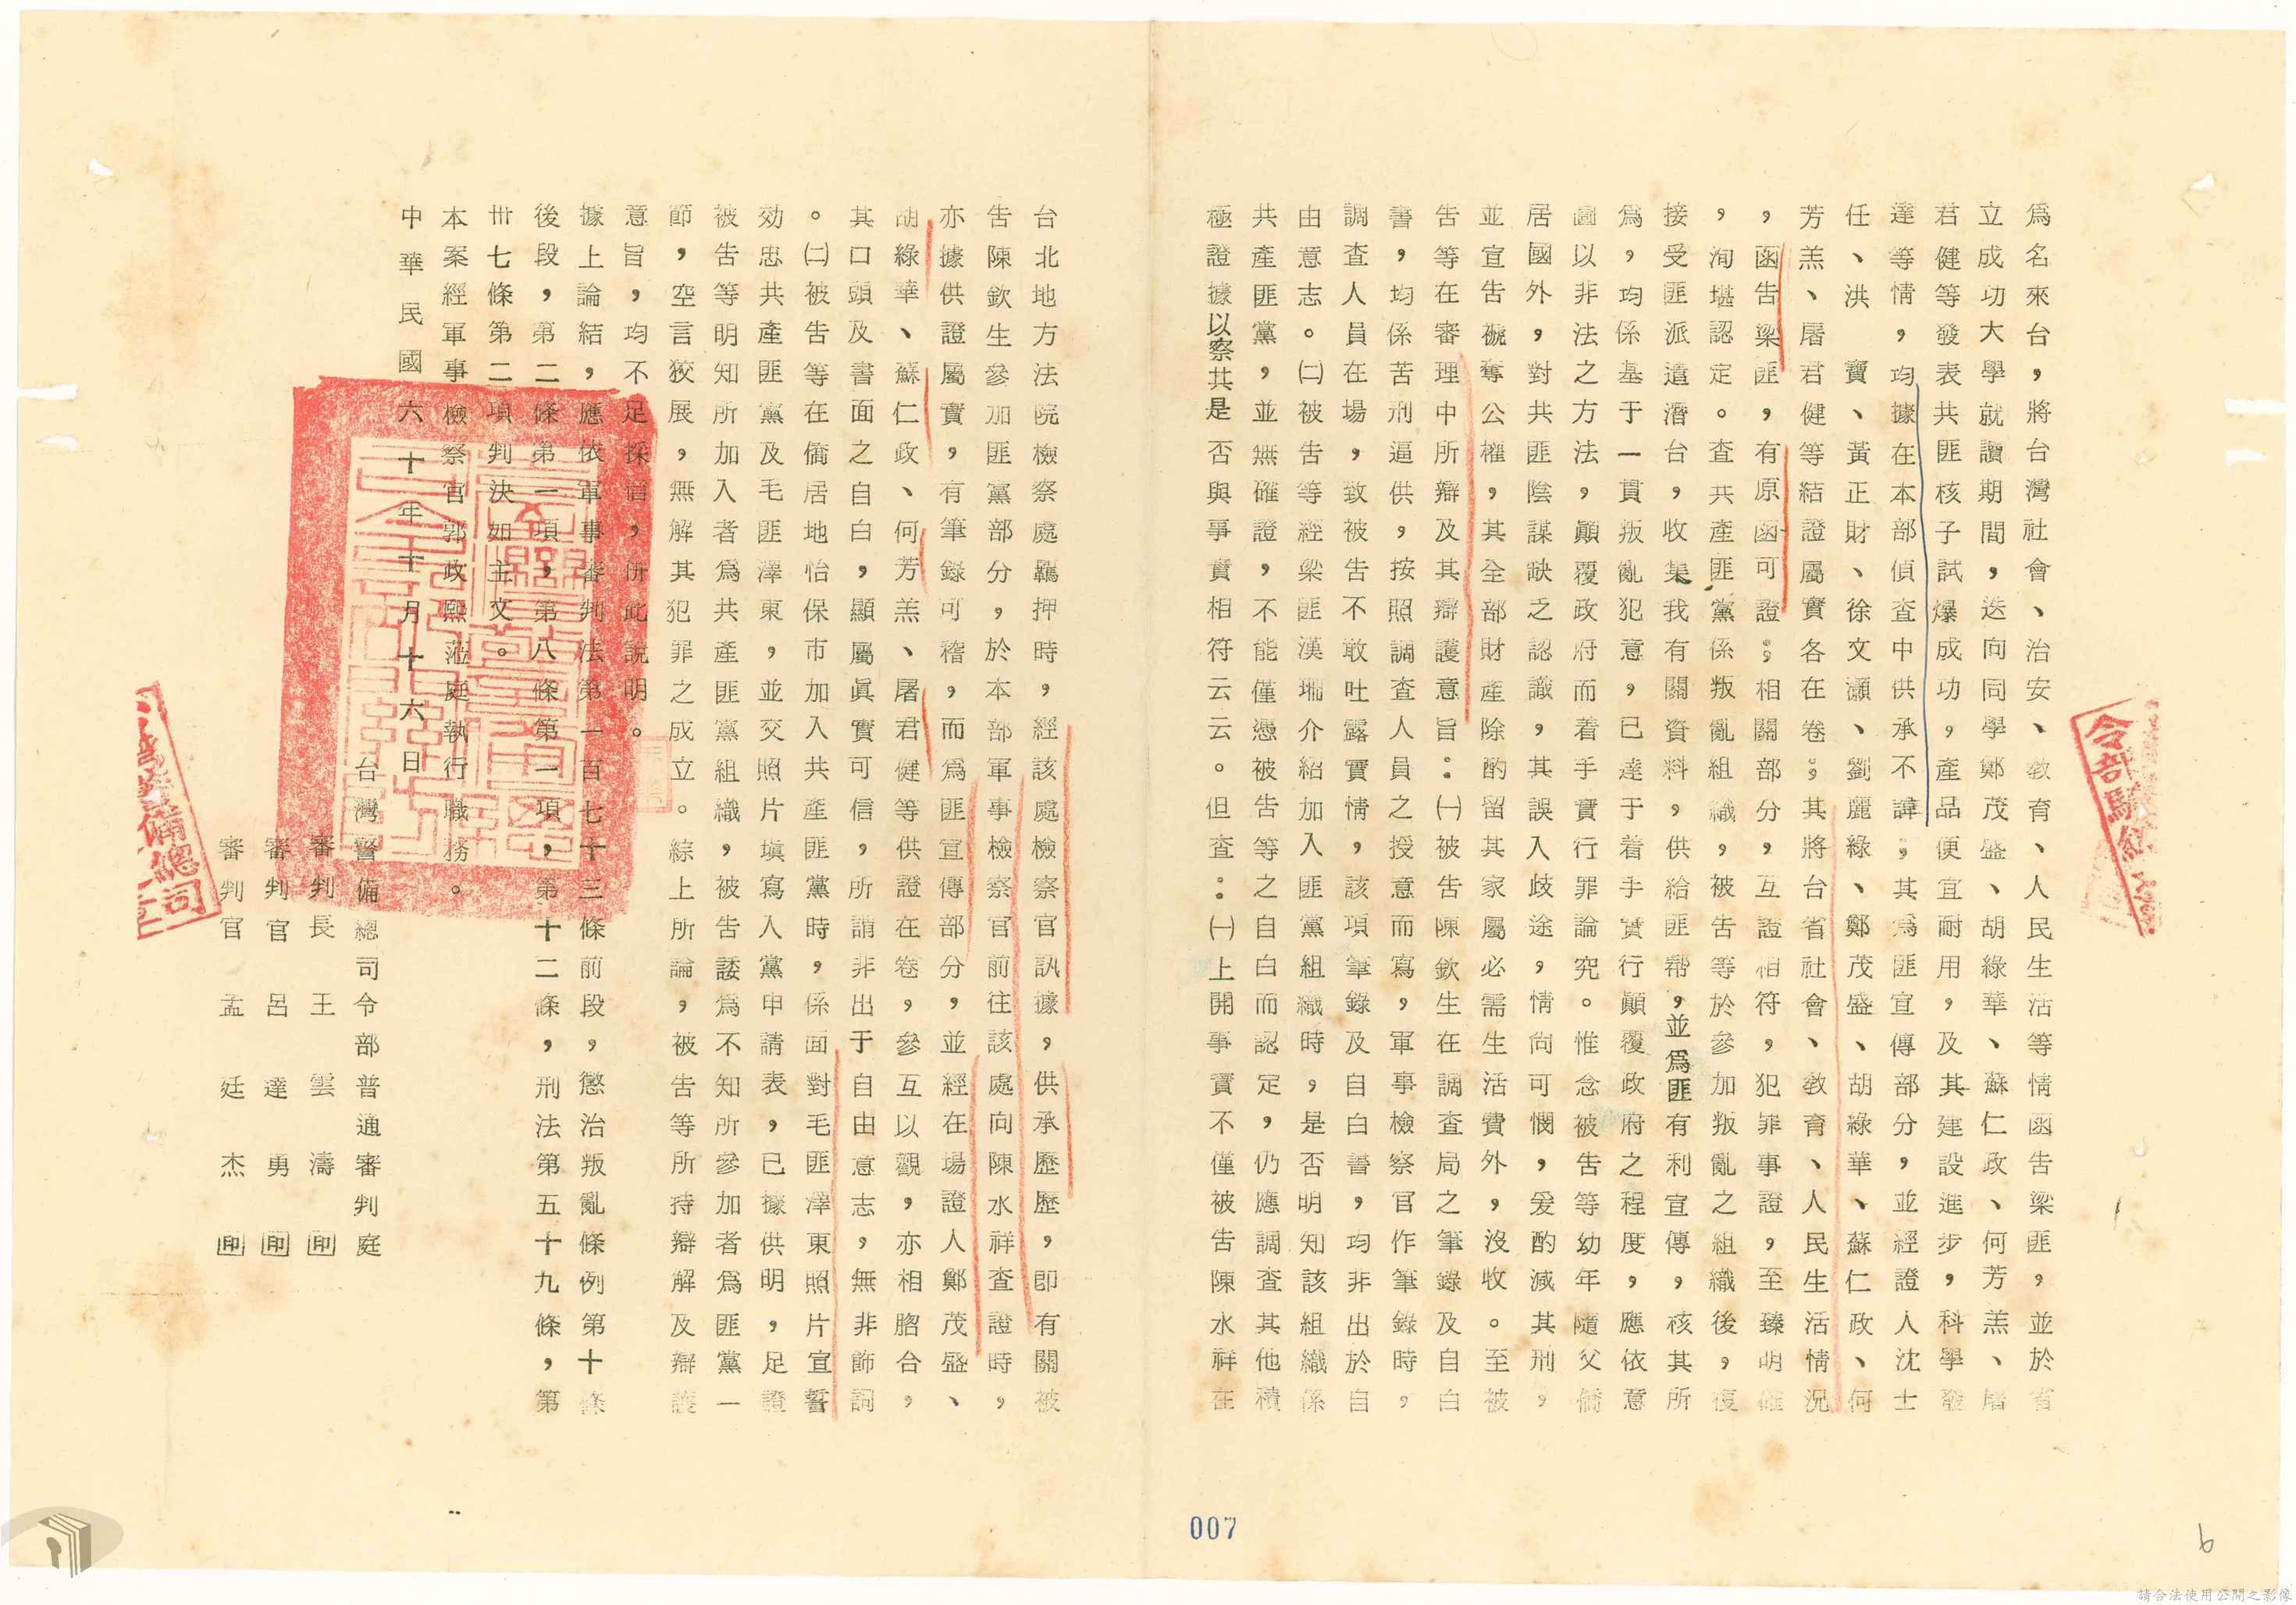 為名來台，將台灣社會、治安、教育、人民生活等情函告梁匪，並於省
立成功大學就讀期間，迭向同學鄭茂盛、胡綠華、蘇仁政、何芳羔、屠
君健等發表共匪核子試爆成功，產品便宜耐用，及其建設進步，科學發
達等情，均據在本部偵查中供承不諱；其為匪宣傳部分，並經證人沈士
任、洪　寶、黃正財、徐文瀨、劉麗綠、鄭茂盛、胡綠華、蘇仁政、何
芳羔、屠君健等結證屬實各在卷；其將台省社會、教育、人民生活情況
，函告梁匪，有原函可證；相關部分，互證相符，犯罪事證，至臻明確
，洵堪認定。查共產匪黨係叛亂組織，被告等於參加叛亂之組織後，復
接受匪派遣潛台，收集我有關資料，供給匪幫，並為匪有利宣傳，核其所
為，均係基于一貫叛亂犯意，已達于着手實行顛覆政府之程度，應依意
圖以非法之方法，顛覆政府而着手實行罪論究。惟念被告等幼年隨父僑
居國外，對共匪陰謀缺乏認識，其誤入歧途，情尚可憫，爰酌減其刑，
並宣告褫奪公權，其全部財產除酌留其家屬必需生活費外，沒收。至被
告等在審理中所辯及其辯護意旨：㈠被告陳欽生在調查局之筆錄及自白
書，均係苦刑逼供，按照調查人員之授意而寫，軍事檢察官作筆錄時，
調查人員在場，致被告不敢吐露實情，該項筆錄及自白書，均非出於自
由意志。㈡被告等經梁匪漢珊介紹加入匪黨組織時，是否明知該組織係
共產匪黨，並無確證，不能僅憑被告等之自白而認定，仍應調查其他積
極證據以察其是否與事實相符云云。但查：㈠上開事實不僅被告陳水祥在
台北地方法院檢察處羈押時，經該處檢察官訊據，供承歷歷，即有關被
告陳欽生參加匪黨部分，於本部軍事檢察官前往該處向陳水祥查證時，
亦據供證屬實，有筆錄可稽，而為匪宣傳部分，並經在場證人鄭茂盛、
胡綠華、蘇仁政、何芳羔、屠君健等供證在卷，參互以觀，亦相脗合，
其口頭及書面之自白，顯屬真實可信，所謂非出于自由意志，無非飾詞
。㈡被告等在僑居地怡保市加入共產匪黨時，係面對毛匪澤東照片宣誓
効忠共產匪黨及毛匪澤東，並交照片塡寫入黨申請表，已據供明，足證
被告等明知所加入者為共產匪黨組織，被告諉為不知所參加者為匪黨一
節，空言狡展，無解其犯罪之成立。綜上所論，被告等所持辯解及辯護
意旨，均不足採信，併此說明。
據上論結，應依軍事審判法第一百七十三條前段，懲治叛亂條例第十條
後段，第二條第一項，第八條第一項，第十二條，刑法第五十九條，第
卅七條第二項判決如主文。
本案經軍事檢察官郭政熙蒞庭執行職務。
中華民國六十年十月十六日
台灣警備總司令部普通審判庭
審判長　王雲濤　印
審判官　呂達勇　印
審判官　孟廷杰　印
007
6
請合法使用公開之影像